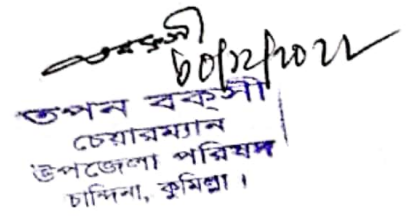 তপন বক্‌সী
চেয়ারম্যান
উপজেলা পরিষদ
চান্দিনা, কুমিল্লা।